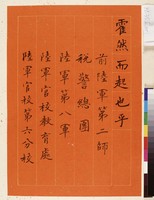 霍然而起也乎
前陸軍第二師
稅警總團
陸軍第八軍
陸軍官校教育處
陸軍官校第六分校